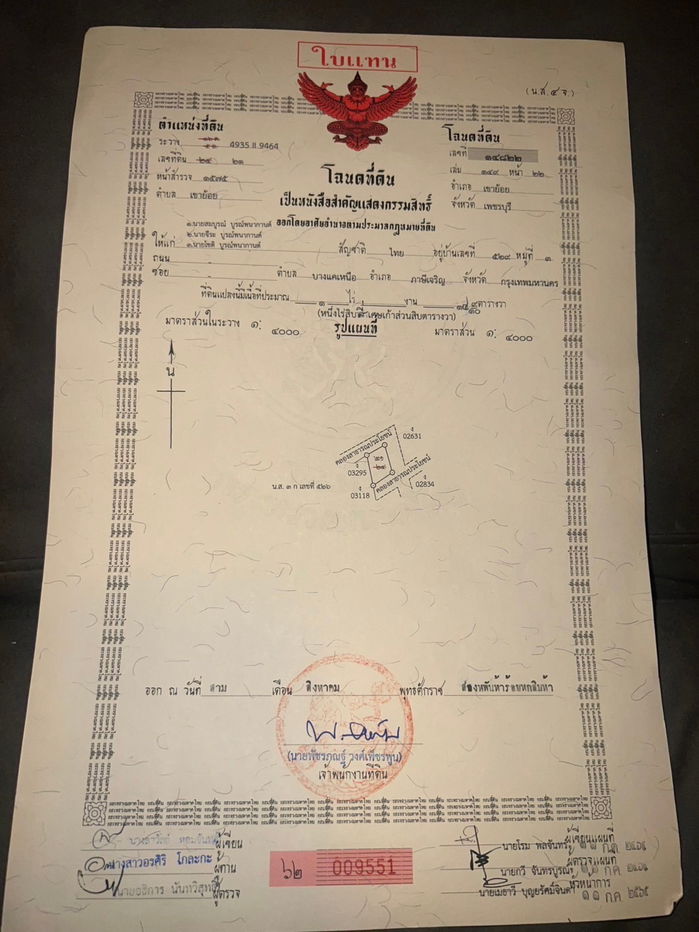 ใบแทน
(น.ส.๔ จ.)
ตำแหน่งที่ดิน
ระวาง 4935 II 9464
เลขที่ดิน ๒๔ ๒๑
หน้าสำรวจ ๑๕๗๕
ตำบล เขาย้อย
โฉนดที่ดิน
เลขที่ ๑๔๘๒๒
เล่ม ๑๔๙ หน้า ๒๒
อำเภอ เขาย้อย
จังหวัด เพชรบุรี
โฉนดที่ดิน
เป็นหนังสือสำคัญแสดงกรรมสิทธิ์
ออกโดยอาศัยอำนาจตามประมวลกฎหมายที่ดิน
๑.นายสมบูรณ์ บูรณ์พนากานต์
๒.นายจีระ บูรณ์พนากานต์
ให้แก่ ๓.นายโชติ บูรณ์พนากานต์ สัญชาติ ไทย อยู่บ้านเลขที่ ๕๒๙ หมู่ที่ ๓
ถนน
ซอย ตำบล บางแคเหนือ อำเภอ ภาษีเจริญ จังหวัด กรุงเทพมหานคร
ที่ดินแปลงนี้มีเนื้อที่ประมาณ ๑ ไร่ งาน ตารางวา
(หนึ่งไร่สิบสี่เศษเก้าส่วนสิบตารางวา)
มาตราส่วนในระวาง ๑: ๔๐๐๐
รูปแผนที่
มาตราส่วน ๑: ๔๐๐๐
น
คลองสาธารณประโยชน์
ง 02631
ง 03295
๒๑
คลองสาธารณประโยชน์
น.ส. ๓ ก เลขที่ ๕๒๖
ง 03118
ง 02834
ออก ณ วันที่ สาม เดือน สิงหาคม พุทธศักราช สองพันห้าร้อยหกสิบห้า
(นายพัชรภณฐ์ วงศ์เพ็ชรพูน)
เจ้าพนักงานที่ดิน
ผู้เขียน
นางสาวอรศิริ โกละกะ ผู้ทาน
นายอธิการ นันทวิสุทธิ์ ผู้ตรวจ
๖๒ 009551
นายโรม พลจันทร์ ผู้เขียนแผนที่
นายกวี จันทรบูรณ์ ผู้ตรวจแผนที่
นายเมธาวี บุญยรัศมิ์จินดา หัวหน้าการ
๑๑ กค ๒๕๖๕